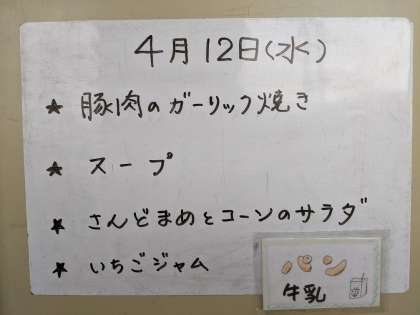 4月12日(水)
★ 豚肉のガーリック焼き
★ スープ
★ さんどまめとコーンのサラダ
★ いちごジャム
パン
牛乳